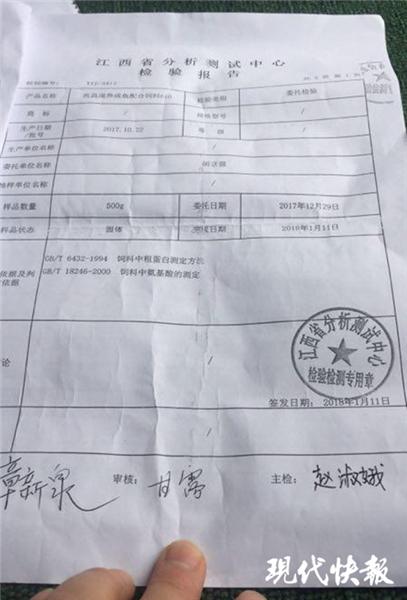 江西省分析测试中心
检验报告
产品名称 检验类别 委托检验
商标 / 规格型号 /
生产日期/批号 2017.10.22 等级 /
生产单位名称 /
委托单位名称
抽样单位名称 /
样品数量 500g 委托日期 2017年12月29日
样品状态 固体 完成日期 2018年1月11日
依据及判 GB/T 6432-1994 饲料中粗蛋白测定方法
依据 GB/T 18246-2000 饲料中氨基酸的测定
论 /
江西省分析测试中心
检验检测专用章
签发日期:2018年1月11日
/
章新泉 审核:甘露 主检:赵淑娥
现代快报